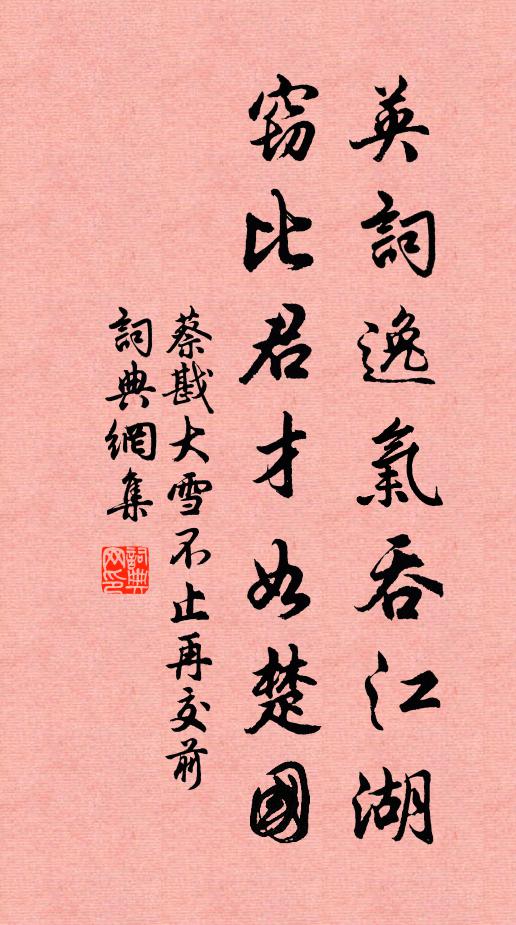 英詞逸氣吞江湖
竊比君才如楚國
蔡戡大雪不止再交前
詞典網集
詞典网印